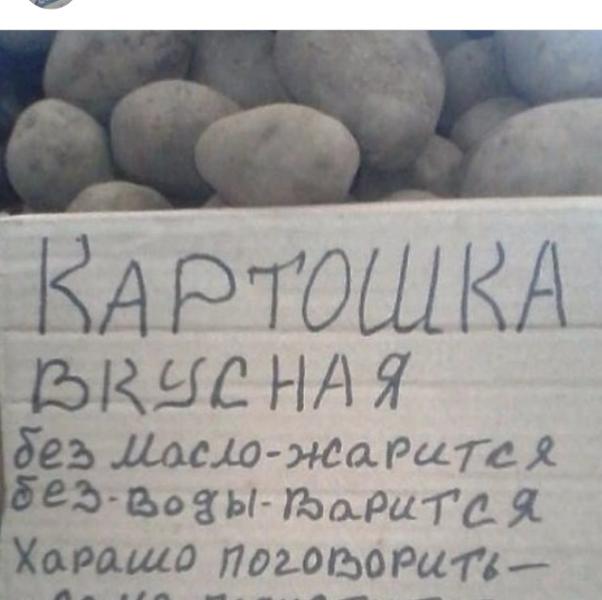 КАРТОШКА
ВКУСНАЯ
без масло-жарится
без-воды-варится
Харашо поговорить—